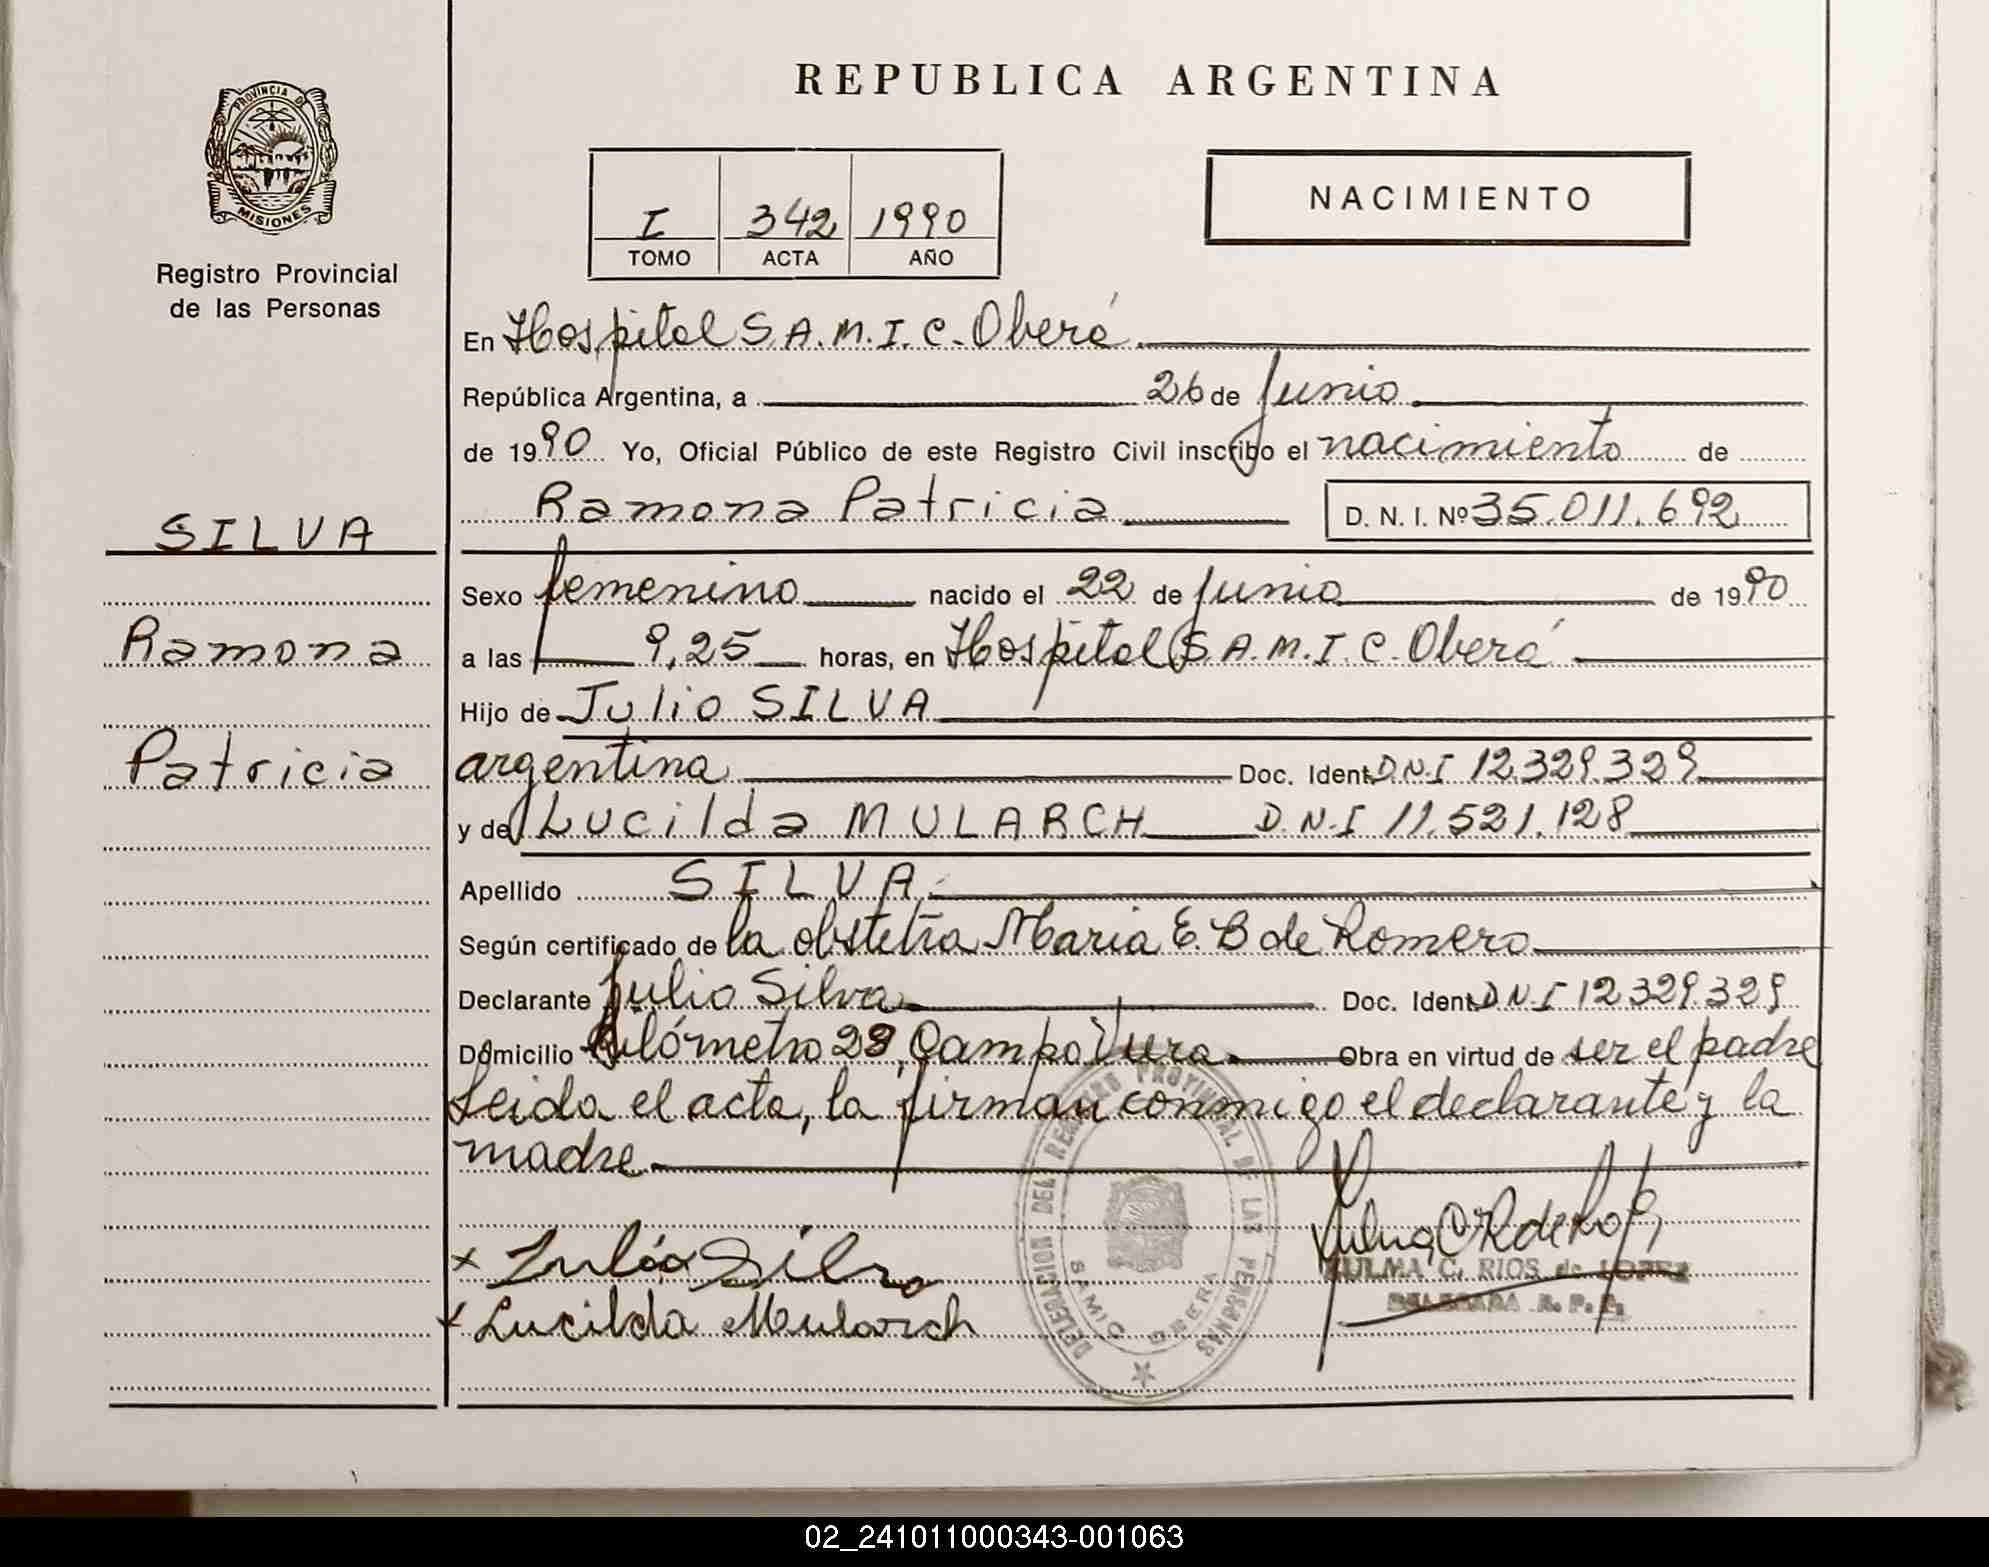 REPUBLICA ARGENTINA
PROVINCIA DE
MISIONES
Registro Provincial
de las Personas
I 342 1990
TOMO ACTA AÑO
NACIMIENTO
En Hospital S.A.M.I.C. Oberá
República Argentina, a 26 de Junio
de 1990 Yo, Oficial Público de este Registro Civil inscribo el nacimiento de
Ramona Patricia D. N. I. Nº 35.011.692
SILVA
Sexo femenino nacido el 22 de Junio de 1990
Ramona
a las 9,25 horas, en Hospital S.A.M.I.C. Oberá
Hijo de Julio SILVA
Patricia
argentina Doc. Ident. D.N.I 12.329.329
y de Lucilda MULARCH D.N.I 11.521.128
Apellido SILVA.
Según certificado de la obstetra Maria E. B de Romero
Declarante Julio Silva Doc. Ident. D.N.I 12.329.329
Domicilio Kilómetro 28, Campo Viera Obra en virtud de ser el padre
Leida el acta, la firman conmigo el declarante y la
madre
DELEGACION DEL REGISTRO PROVINCIAL DE LAS PERSONAS
SAMIC OBERA
x Julio Silva
ZULMA C. RIOS de LOPEZ
DELEGADA R. P. P.
x Lucilda Mularch
02_241011000343-001063